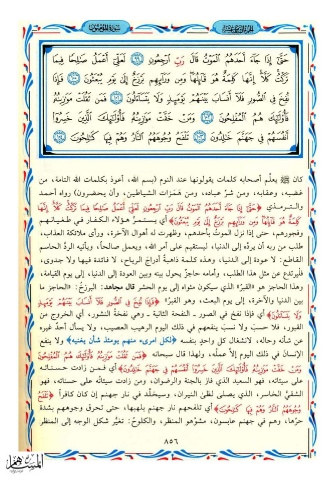 حَتَّىٰ إِذَا جَاءَ أَحَدَهُمُ الْمَوْتُ قَالَ رَبِّ ارْجِعُونِ ﴿٩٩﴾ لَعَلِّي أَعْمَلُ صَالِحًا فِيمَا
تَرَكْتُ كَلَّا إِنَّهَا كَلِمَةٌ هُوَ قَائِلُهَا وَمِن وَرَائِهِم بَرْزَخٌ إِلَىٰ يَوْمِ يُبْعَثُونَ ﴿١٠٠﴾ فَإِذَا
نُفِخَ فِي الصُّورِ فَلَا أَنسَابَ بَيْنَهُمْ يَوْمَئِذٍ وَلَا يَتَسَاءَلُونَ ﴿١٠١﴾ فَمَن ثَقُلَتْ مَوَازِينُهُ
فَأُولَٰئِكَ هُمُ الْمُفْلِحُونَ ﴿١٠٢﴾ وَمَنْ خَفَّتْ مَوَازِينُهُ فَأُولَٰئِكَ الَّذِينَ خَسِرُوا
أَنفُسَهُمْ فِي جَهَنَّمَ خَالِدُونَ ﴿١٠٣﴾ تَلْفَحُ وُجُوهَهُمُ النَّارُ وَهُمْ فِيهَا كَالِحُونَ ﴿١٠٤﴾
كان ﷺ يعلّم أصحابه كلمات يقولونها عند النوم (بسم الله، أعوذ بكلمات الله التامة، من
غضبه، وعقابه، ومن شرّ عباده، ومن همَزات الشياطين، وأن يحضرون) رواه أحمد
والترمذي ﴿حَتَّىٰ إِذَا جَاءَ أَحَدَهُمُ الْمَوْتُ قَالَ رَبِّ ارْجِعُونِ لَعَلِّي أَعْمَلُ صَالِحًا فِيمَا تَرَكْتُ كَلَّا إِنَّهَا
كَلِمَةٌ هُوَ قَائِلُهَا وَمِن وَرَائِهِم بَرْزَخٌ إِلَىٰ يَوْمِ يُبْعَثُونَ﴾ أي يستمرّ هؤلاء الكفار في طغيانهم
وفجورهم، حتى إذا نزل الموتُ بأحدهم، وظهرت له أهوال الآخرة، ورأى ملائكة العذاب،
طلب من ربه أن يردَّه إلى الدنيا، ليستقيم على أمر الله، ويعمل صالحاً، ويأتيه الردّ الحاسم
القاطع: لا عودة إلى الدنيا، وهذه كلمة ذاهبةٌ أدراجَ الرياح، لا فائدة فيها ولا جدوى،
فليرتدع عن مثل هذا الطلب، وأمامه حاجزٌ يحول بينه وبين العودة إلى الدنيا، إلى يوم القيامة،
وهذا الحاجز هو «القبرُ» الذي سيكون مثواه إلى يوم الحشر قال مجاهد: البرزخُ: «الحاجز ما
بين الدنيا والآخرة، إلى يوم البعث، وهو القبرُ» ﴿فَإِذَا نُفِخَ فِي الصُّورِ فَلَا أَنسَابَ بَيْنَهُمْ يَوْمَئِذٍ
وَلَا يَتَسَاءَلُونَ﴾ أي فإذا نفخ في الصور ـ النفخة الثانية ـ وهي نفخةُ النشور، أي الخروج من
القبور، فلا حسبٌ ولا نسبٌ ينفعهم في ذلك اليوم الرهيب العصيب، ولا يسأل أحدٌ غيره
عن شأنه وحاله، لانشغال كل واحدٍ بنفسه ﴿لكل امرىء منهم يومئذ شأن يغنيه﴾ ولا ينفع
الإنسانَ في ذلك اليوم إلاّ عملُه، ولهذا قال سبحانه ﴿فَمَن ثَقُلَتْ مَوَازِينُهُ فَأُولَٰئِكَ هُمُ الْمُفْلِحُونَ
وَمَنْ خَفَّتْ مَوَازِينُهُ فَأُولَٰئِكَ الَّذِينَ خَسِرُوا أَنفُسَهُمْ فِي جَهَنَّمَ خَالِدُونَ﴾ أي فمن زادت حسناته
على سيئاته، فهو السعيد الذي فاز بالجنة والرضوان، ومن زادت سيئاته على حسناته، فهو
الشقيُّ الخاسر، الذي يصلى لظى النيران، وسيخلّد في نار جهنم إن كان كافراً ﴿تَلْفَحُ
وُجُوهَهُمُ النَّارُ وَهُمْ فِيهَا كَالِحُونَ﴾ أي تلفحهم نار جهنم بلهبها، حتى تحرق وجوههم بشدة
حرّها، وهم في جهنم عابسون، مشوّهو المنظر، والكلوحُ: تغيّر شكل الوجه إلى المنظر
٨٥٦